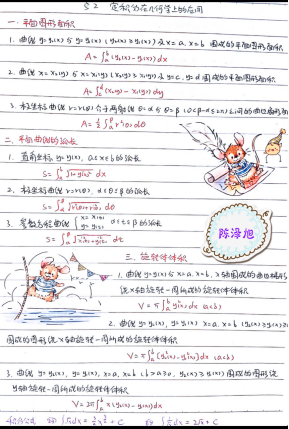 5.2 定积分在几何学上的应用
一.平面图形面积
1. 曲线 y=y₁(x) 与 y=y₂(x) (y₂(x)≥y₁(x)) 及 x=a, x=b 围成的平面图形面积
A=∫ₐᵇ(y₂(x)-y₁(x))dx
2. 曲线 x=x₁(y) 与 x=x₂(y) 及 y=c, y=d 围成的平面图形面积
3. 极坐标曲线 r=r(θ) 介于两射线 θ=α 与 θ=β (0<β-α≤2π) 之间的曲边扇形
A=½∫r²(θ)dθ
二.平面曲线的弧长
1. 直角坐标 y=y(x), a≤x≤b 的弧长
2. 极坐标曲线 r=r(θ), α≤θ≤β 的弧长
3. 参数方程曲线 { x=x(t) y=y(t) α≤t≤β 的弧长
陈泽旭
三.旋转体体积
1. 曲线 y=y(x) 与 x=a, x=b, x轴围成的曲边梯形
绕x轴旋转一周所成的旋转体体积
V=π∫ₐᵇy²(x)dx (a<b)
2. 曲线 y=y₁(x), y=y₂(x) x=a, x=b
围成的图形绕x轴旋转一周所成的旋转体体积
V=π∫ₐᵇ(y₂²(x)-y₁²(x))dx (a<b)
3. 曲线 y=y₁(x), y=y₂(x), x=a, x=b (b>a≥0, y₂(x)≥y₁(x)) 围成图形绕
y轴旋转一周所成的旋转体体积
V=2π∫ₐᵇx(y₂(x)-y₁(x))dx